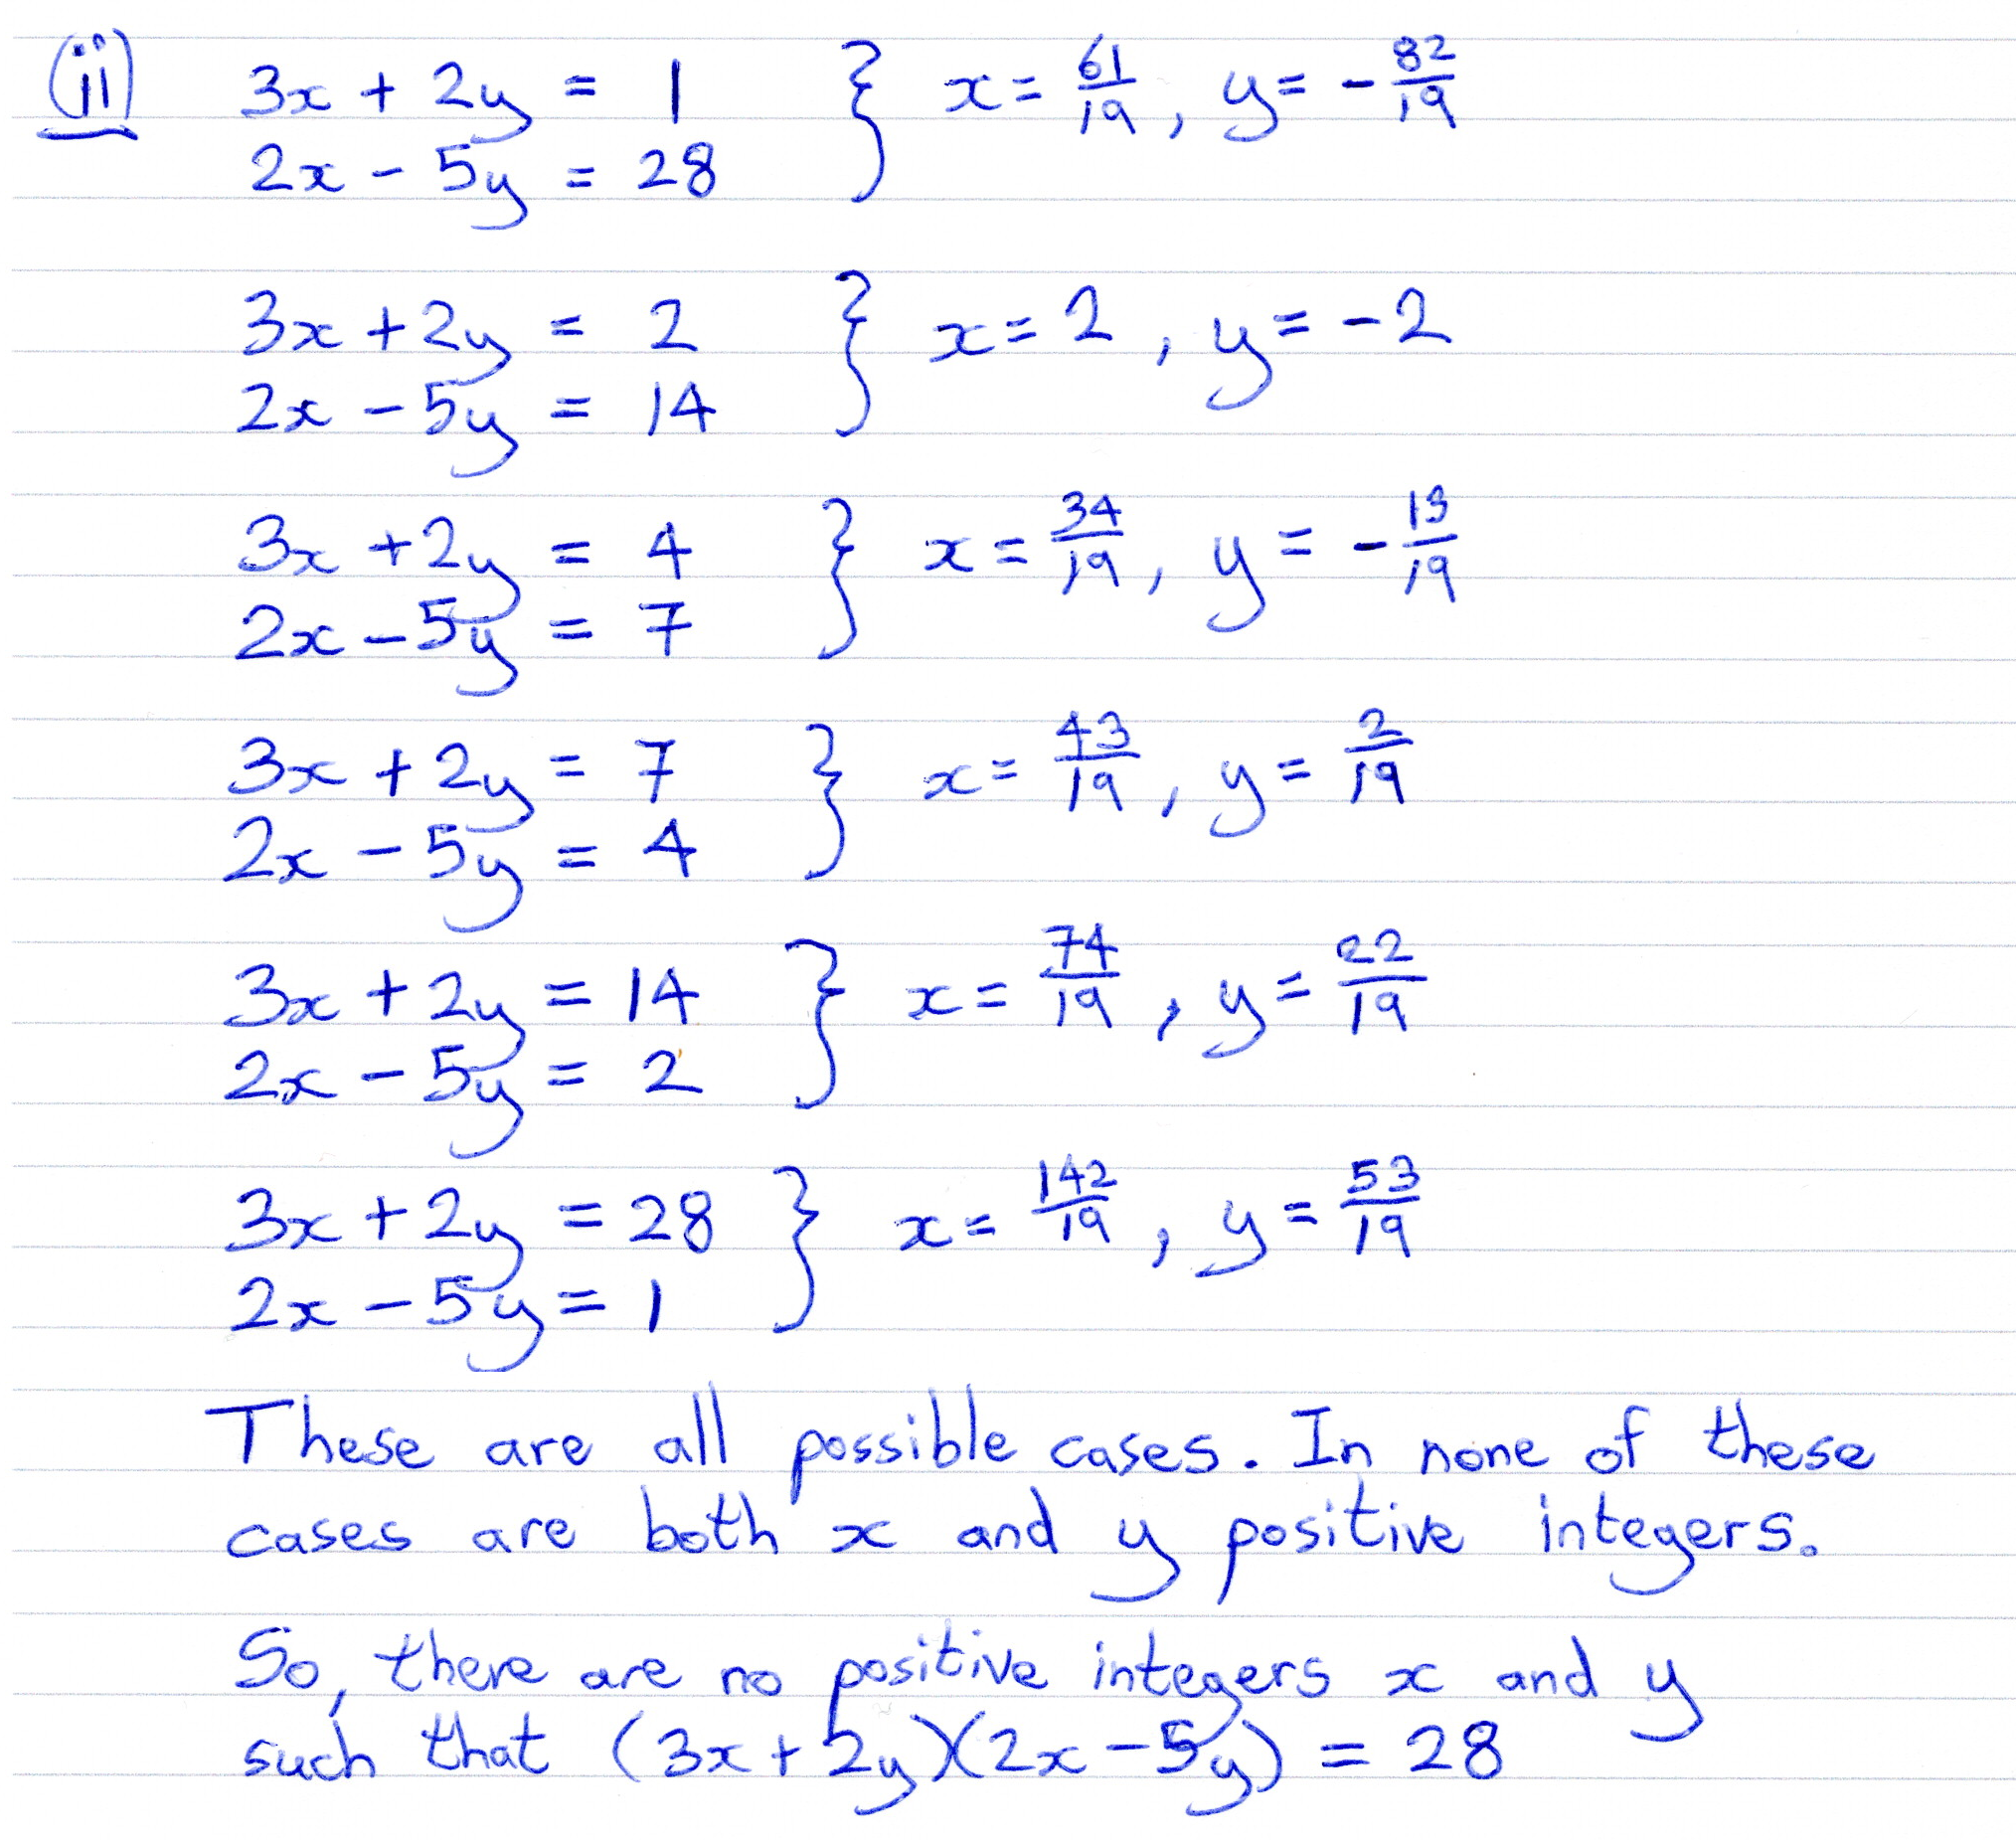 (ii) 3x + 2y = 1 } x = 61/19, y = -82/19
2x - 5y = 28
3x + 2y = 2 } x = 2, y = -2
2x - 5y = 14
3x + 2y = 4 } x = 34/19, y = -13/19
2x - 5y = 7
3x + 2y = 7 } x = 43/19, y = 2/19
2x - 5y = 4
3x + 2y = 14 } x = 74/19, y = 22/19
2x - 5y = 2
3x + 2y = 28 } x = 142/19, y = 53/19
2x - 5y = 1
These are all possible cases. In none of these
cases are both x and y positive integers.
So, there are no positive integers x and y
such that (3x + 2y)(2x - 5y) = 28